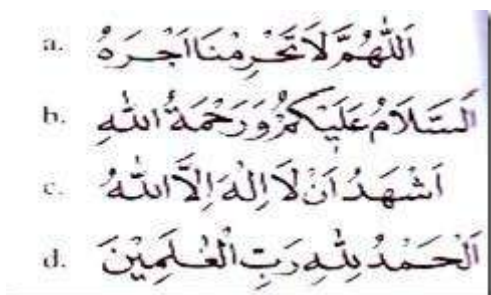 a. اَللّٰهُمَّ لَا تَحْرِمْنَا اَجْرَهُ
b. اَلسَّلَامُ عَلَيْكُمْ وَرَحْمَةُ اللّٰهِ
c. اَشْهَدُ اَنْ لَا اِلٰهَ اِلَّا اللّٰهُ
d. اَلْحَمْدُ لِلّٰهِ رَبِّ الْعٰلَمِيْنَ